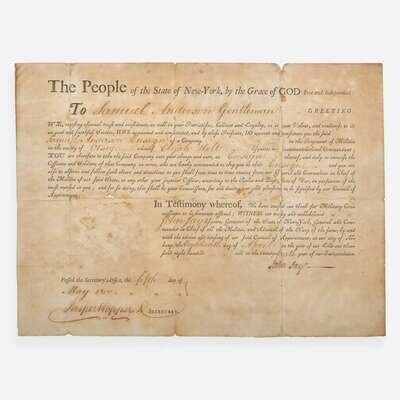 The People of the State of New-York, by the Grace of GOD Free and Independent:
To Samuel Anderson Gentleman GREETING
WE, reposing special trust and confidence, as well in your Patriotism, Conduct and Loyalty, as in your Valour, and readiness to do
us good and faithful Service, HAVE appointed and constituted, and by these Presents, DO appoint and constitute you the said
Samuel Anderson Ensign of a Company in the Regiment of Militia
in the county of Elijah Holt Esquire
YOU are therefore to take the said Company into your charge and care, as Ensign thereof, and duly to exercise the
Officers and Soldiers of that Company in arms, who are hereby commanded to obey and respect you as their
also to observe and follow such orders and directions as you shall from time to time receive from our General and Commander in Chief of
the Militia of our said State, or any other your Superior Officer, according to the Rules and Discipline of War, in pursuance of the
trust reposed in you; and for so doing, this shall be your Commission, for and during our good pleasure, to be signified by our Council of
Appointment.
In Testimony whereof, We have caused our Seal for Military Commissions
to be hereunto affixed; WITNESS our trusty and well-beloved
John Jay Esquire, Governor of our State of New-York, General and Commander
in Chief of all the Militia, and Admiral of the Navy of the same, by and
with the advice and consent of our said Council of Appointment, at our city of Albany,
the day of April in the year of our Lord one thousand
eight hundred and in the twenty year of our Independence.
John Jay
Passed the Secretary's Office, the fifth day of
May 1800.
Jasper Hopper D. SECRETARY.